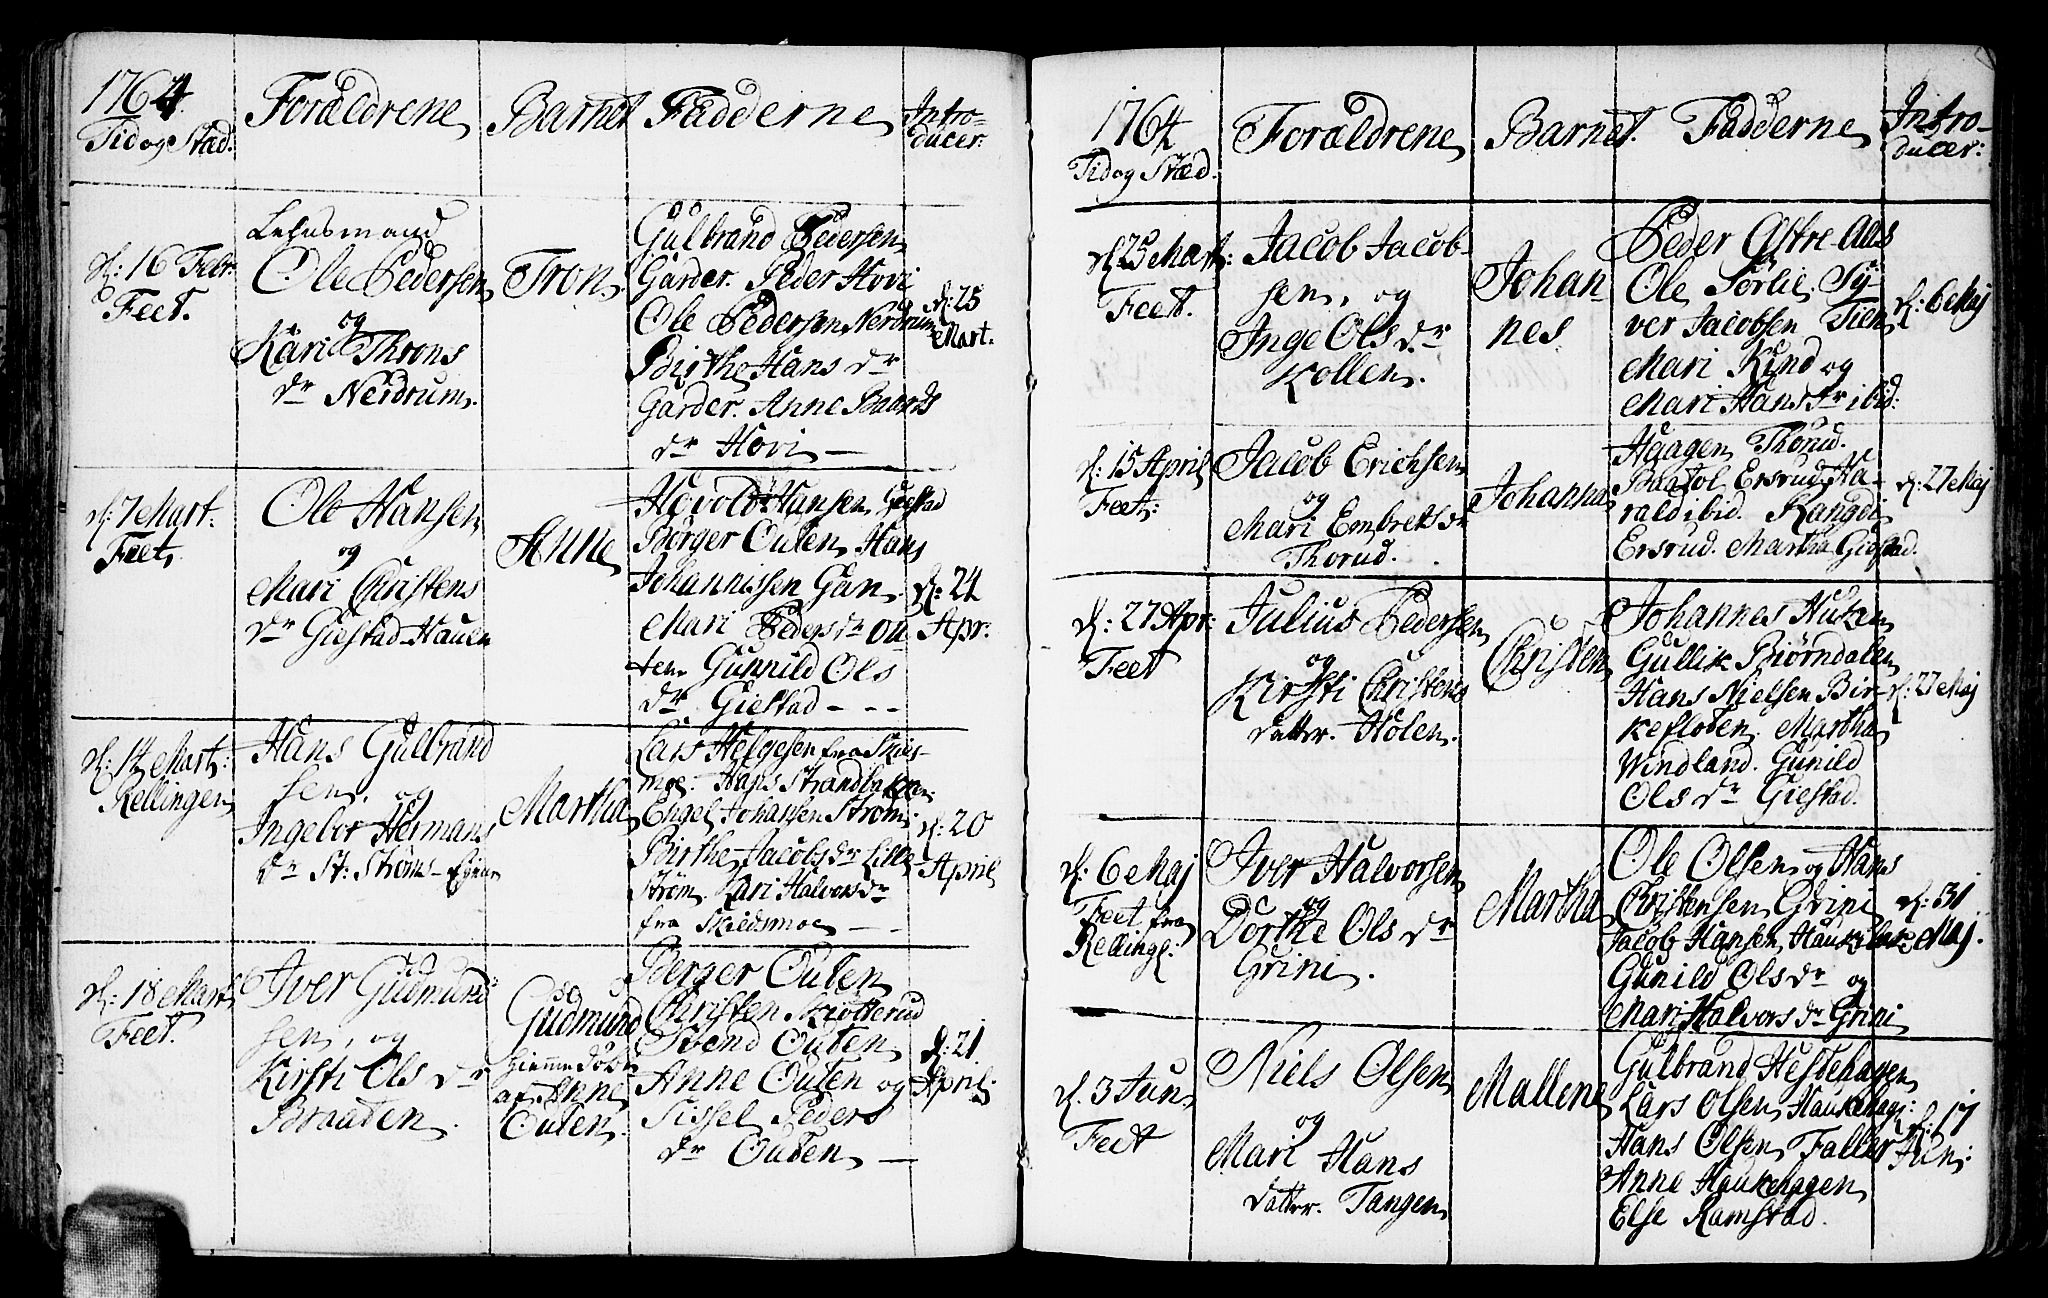 1764.
Tid og Stæd.
Forældrene
Barnet
Fadderne
Intro-
ducer:
d: 16 Febr.
Feet.
Lehnsmand
Ole Pedersen
og
Kari Throns
dr Nerdrum.
Tron
Gulbrand Pedersen
Garder. Peder Hovi
Ole Pedersen Nerdrum
Birthe Hans dr
Garder. Anne Baards
dr Hovi —
d: 25
Mart.
d: 7 Mart.
Feet.
Ole Hansen
og
Mari Christens
dr Giestad Hauen
Anne
Hovold Hansen Giestad
Børger Outen Hans
Johannissen Gan.
Mari Peders dr Ou-
ten Gunnild Ols
dr Giestad - - -
d: 24
Apr:
d: 14 Mart:
Rellingen
Hans Gulbrand
sen, og
Ingebor Hermans
dr St: Strøms-Eynen
Martha
Lars Helgesen fra Skies-
moe: Hans Strandbakken:
Engel Johansen Strøm:
Birthe Jacobs dr Lille
Strøm. Kari Halvors dr
fra Skiedsmoe — -
d: 20
April
d: 18 Mart
Feet.
Iver Gudmund
sen, og
Kirsti Ols dr
Braaten.
Gudmund
hiemmedøbt
af Anne
Outen.
Berger Outen
Christen Kiøtterud
Svend Outen
Anne Outen og
Sissel Peders
dr Outen —
d: 21
April:
1764
Tid og Stæd.
Forældrene
Barnet.
Fadderne
Intro-
ducer:
d 25 Mart:
Feet.
Jacob Jacob-
sen, og
Inge Ols dr
Kollen.
Johan
nes
Peder Østre Aas
Ole Sørlie. Sy-
ver Jacobsen Tien
Mari Kind og
Mari Hans dr ibid:
d: 6 Maj
d: 15 April
Feet:
Jacob Erichsen
og
Mari Embrets dr
Thorud.
Johanna
Haagen Thorud.
Baartol Ersrud Ha-
rald ibid. Rangdi
Ersrud. Martha Giestad.
d: 27 Maj
d: 27 Apr:
Feet
Julius Pedersen
og
Kirsti Christens
datter. Holen.
Christen
Johannes Huken
Gullik Biørndalen
Hans Nielsen Bir-
kefloten. Martha
Windland. Gunild
Ols dr Giestad.
d: 27 Maj
d: 6 Maj
Feet fra
Relling:
Iver Halvorsen
og
Dorthe Ols dr
Grini.
Martha
Ole Olsen og Hans
Christensen Grini
Jacob Hansen
Gunild Ols dr og
Mari Halvors dr Grini
d: 31
Maj.
d. 3 Jun
Feet
Niels Olsen
og
Mari Hans
datter. Tangen
Mallene
Gulbrand Hestehagen
Lars Olsen Haukehag:
Hans Olsen Faller
Anne Haukehagen
Else Ramstad.
d: 17
Jun: